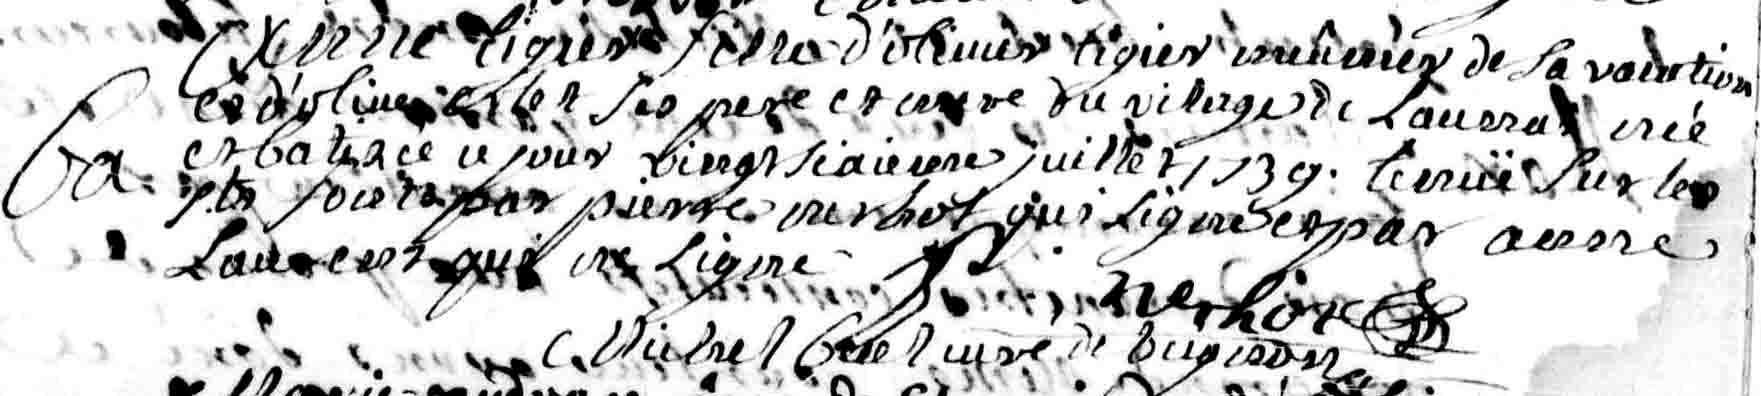 Anne tigier fille d'olivier tigier meûnier de sa vacation
et d'olive ses pere et mere du vilage de Laurrat née
ba. et batisée ce jour vingt siaieme juillet 1739. tenuë sur les
fonts par pierre nerhot qui signe et par anne
Laurent qui ne signe
nerhot
Michel curé de bugnon